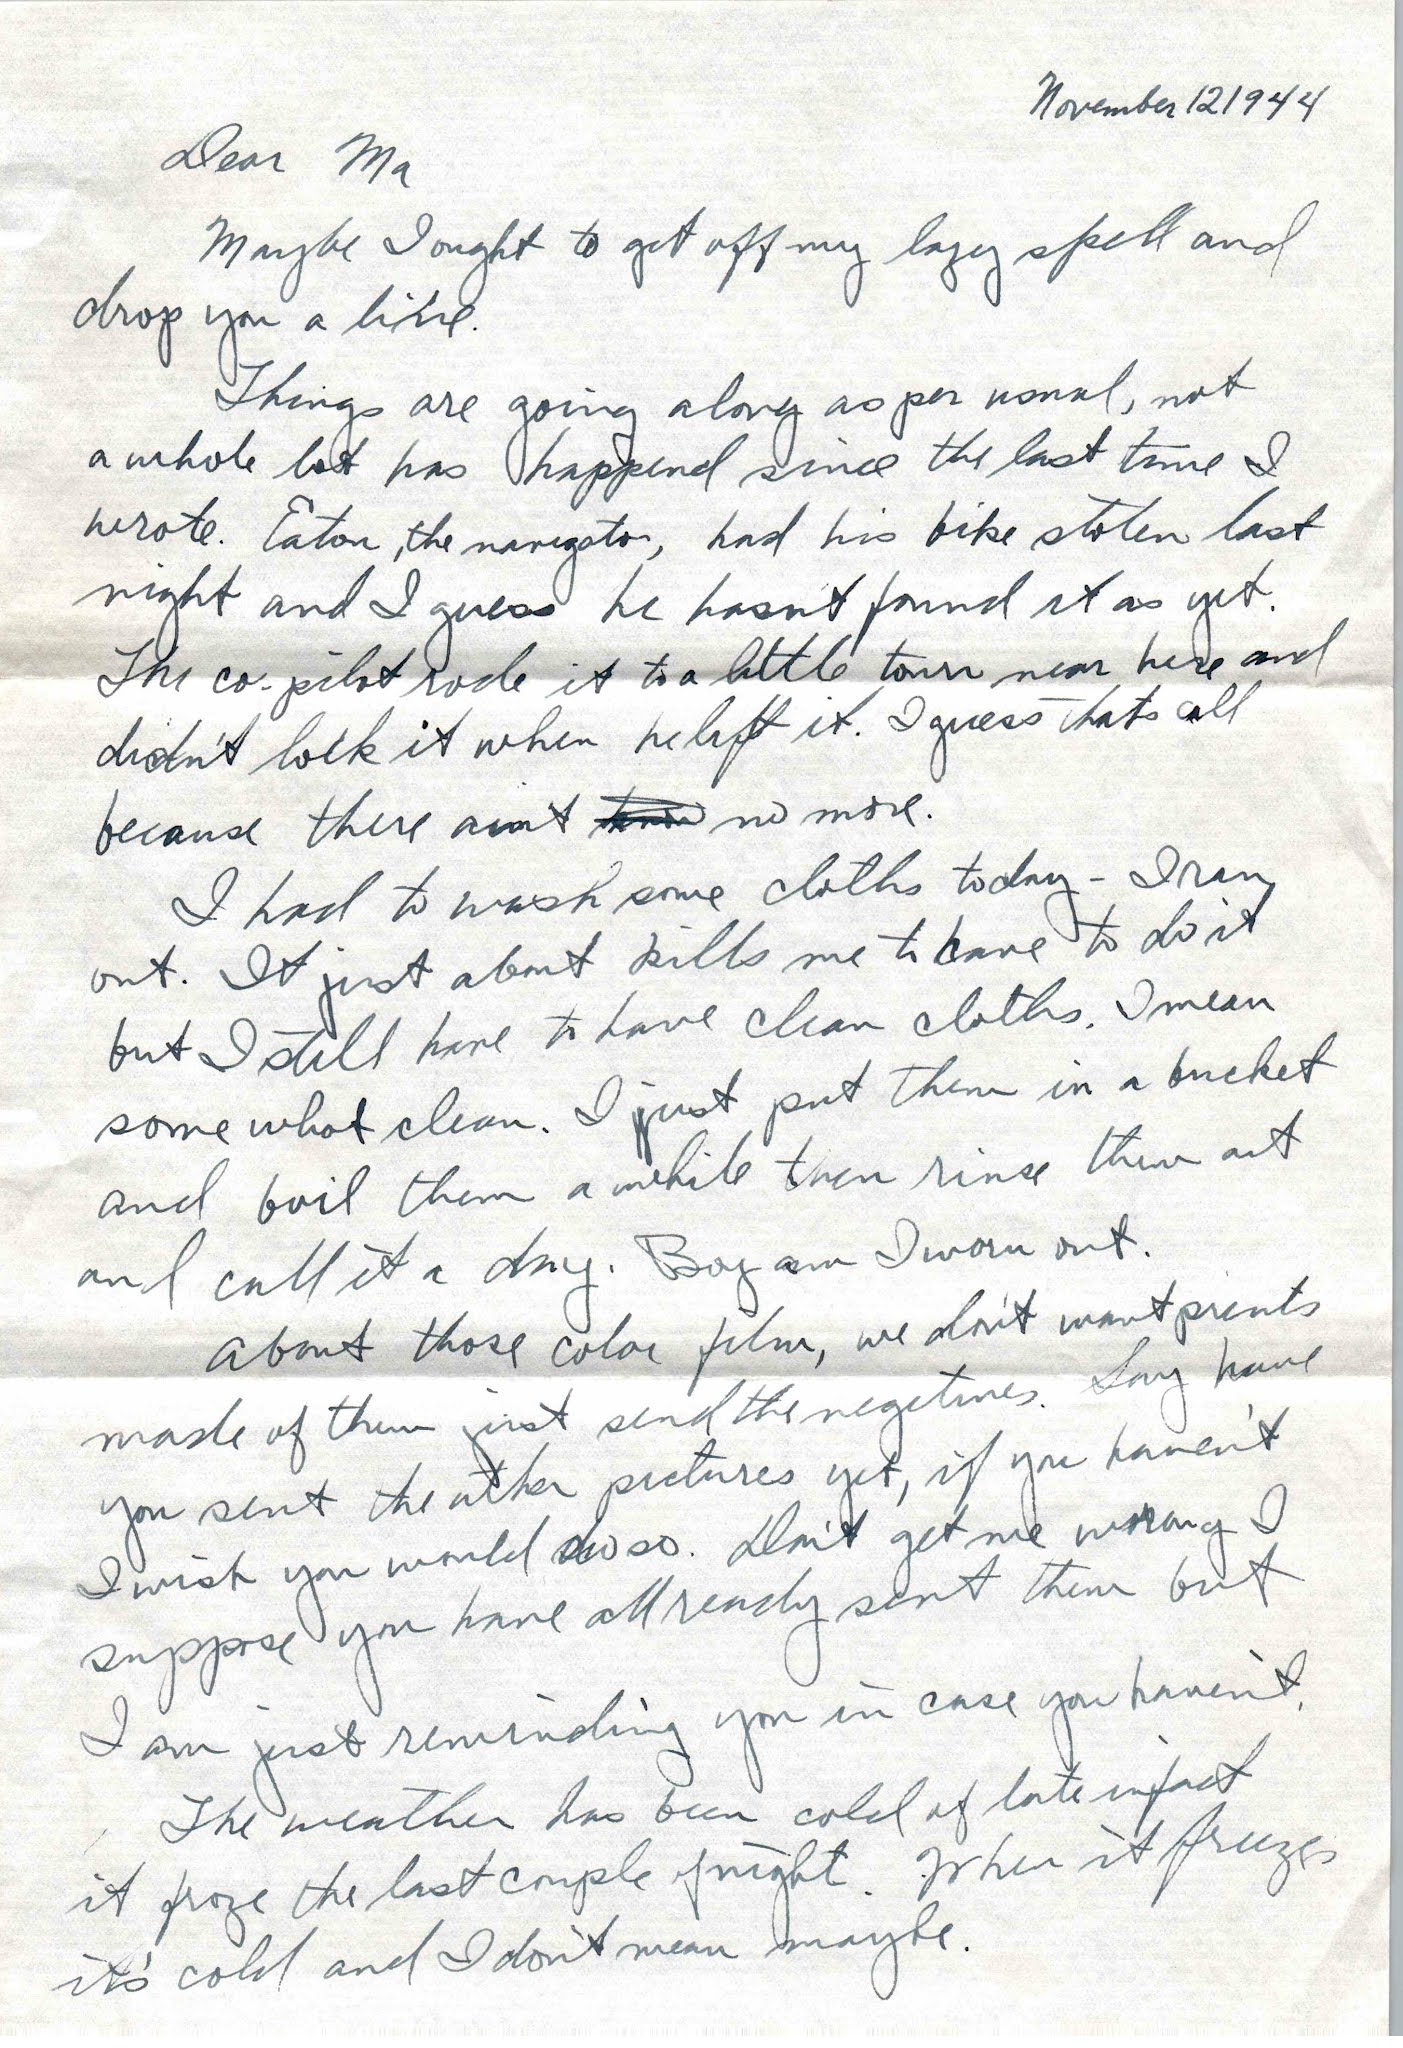 November 12 1944
Dear Ma
Maybe I ought to get off my lazy spell and
drop you a line.
Things are going along as per usual, not
a whole lot has happend since the last time I
wrote. Eaton, the navigator, had his bike stolen last
night and I guess he hasn't found it as yet.
The co-pilot rode it to a little town near here and
didn't lock it when he left it. I guess thats all
because there aint no more.
I had to wash some cloths today - I ran
out. It just about kills me to have to do it
but I still have to have clean cloths. I mean
some what clean. I just put them in a bucket
and boil them a while then rinse them out
and call it a day. Boy am I worn out.
About those color film, we don't want prints
made of them just send the negetives. Say have
you sent the other pictures yet, if you haven't
I wish you would do so. Don't get me wrong I
suppose you have allready sent them but
I am just reminding you in case you haven't.
The weather has been cold of late infact
it froze the last couple of night. When it freezes
it's cold and I don't mean maybe.